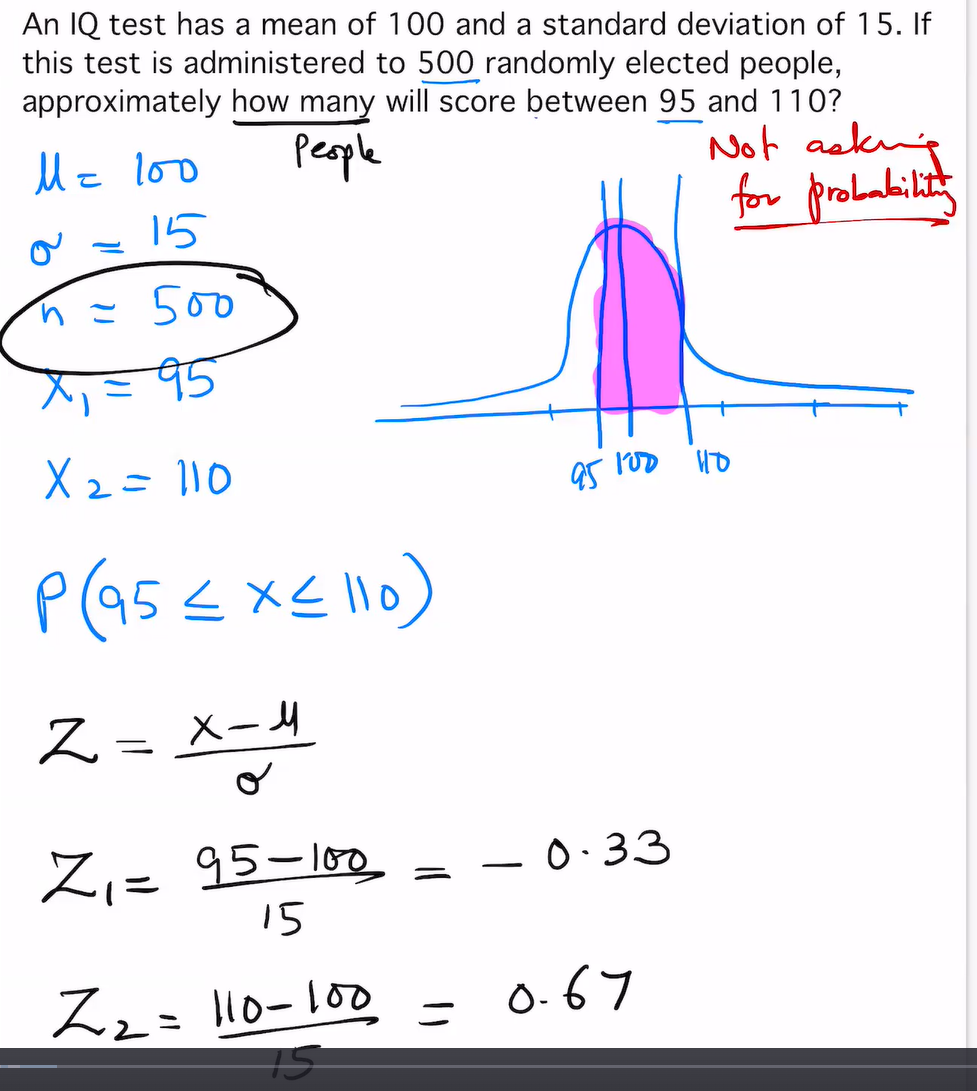 An IQ test has a mean of 100 and a standard deviation of 15. If
this test is administered to 500 randomly elected people,
approximately how many will score between 95 and 110?
People
Not asking
for probability
μ = 100
σ = 15
n = 500
x₁ = 95
x₂ = 110
95 100 110
P(95 ≤ x ≤ 110)
Z = \frac{x-μ}{σ}
Z₁ = \frac{95-100}{15} = -0.33
Z₂ = \frac{110-100}{15} = 0.67